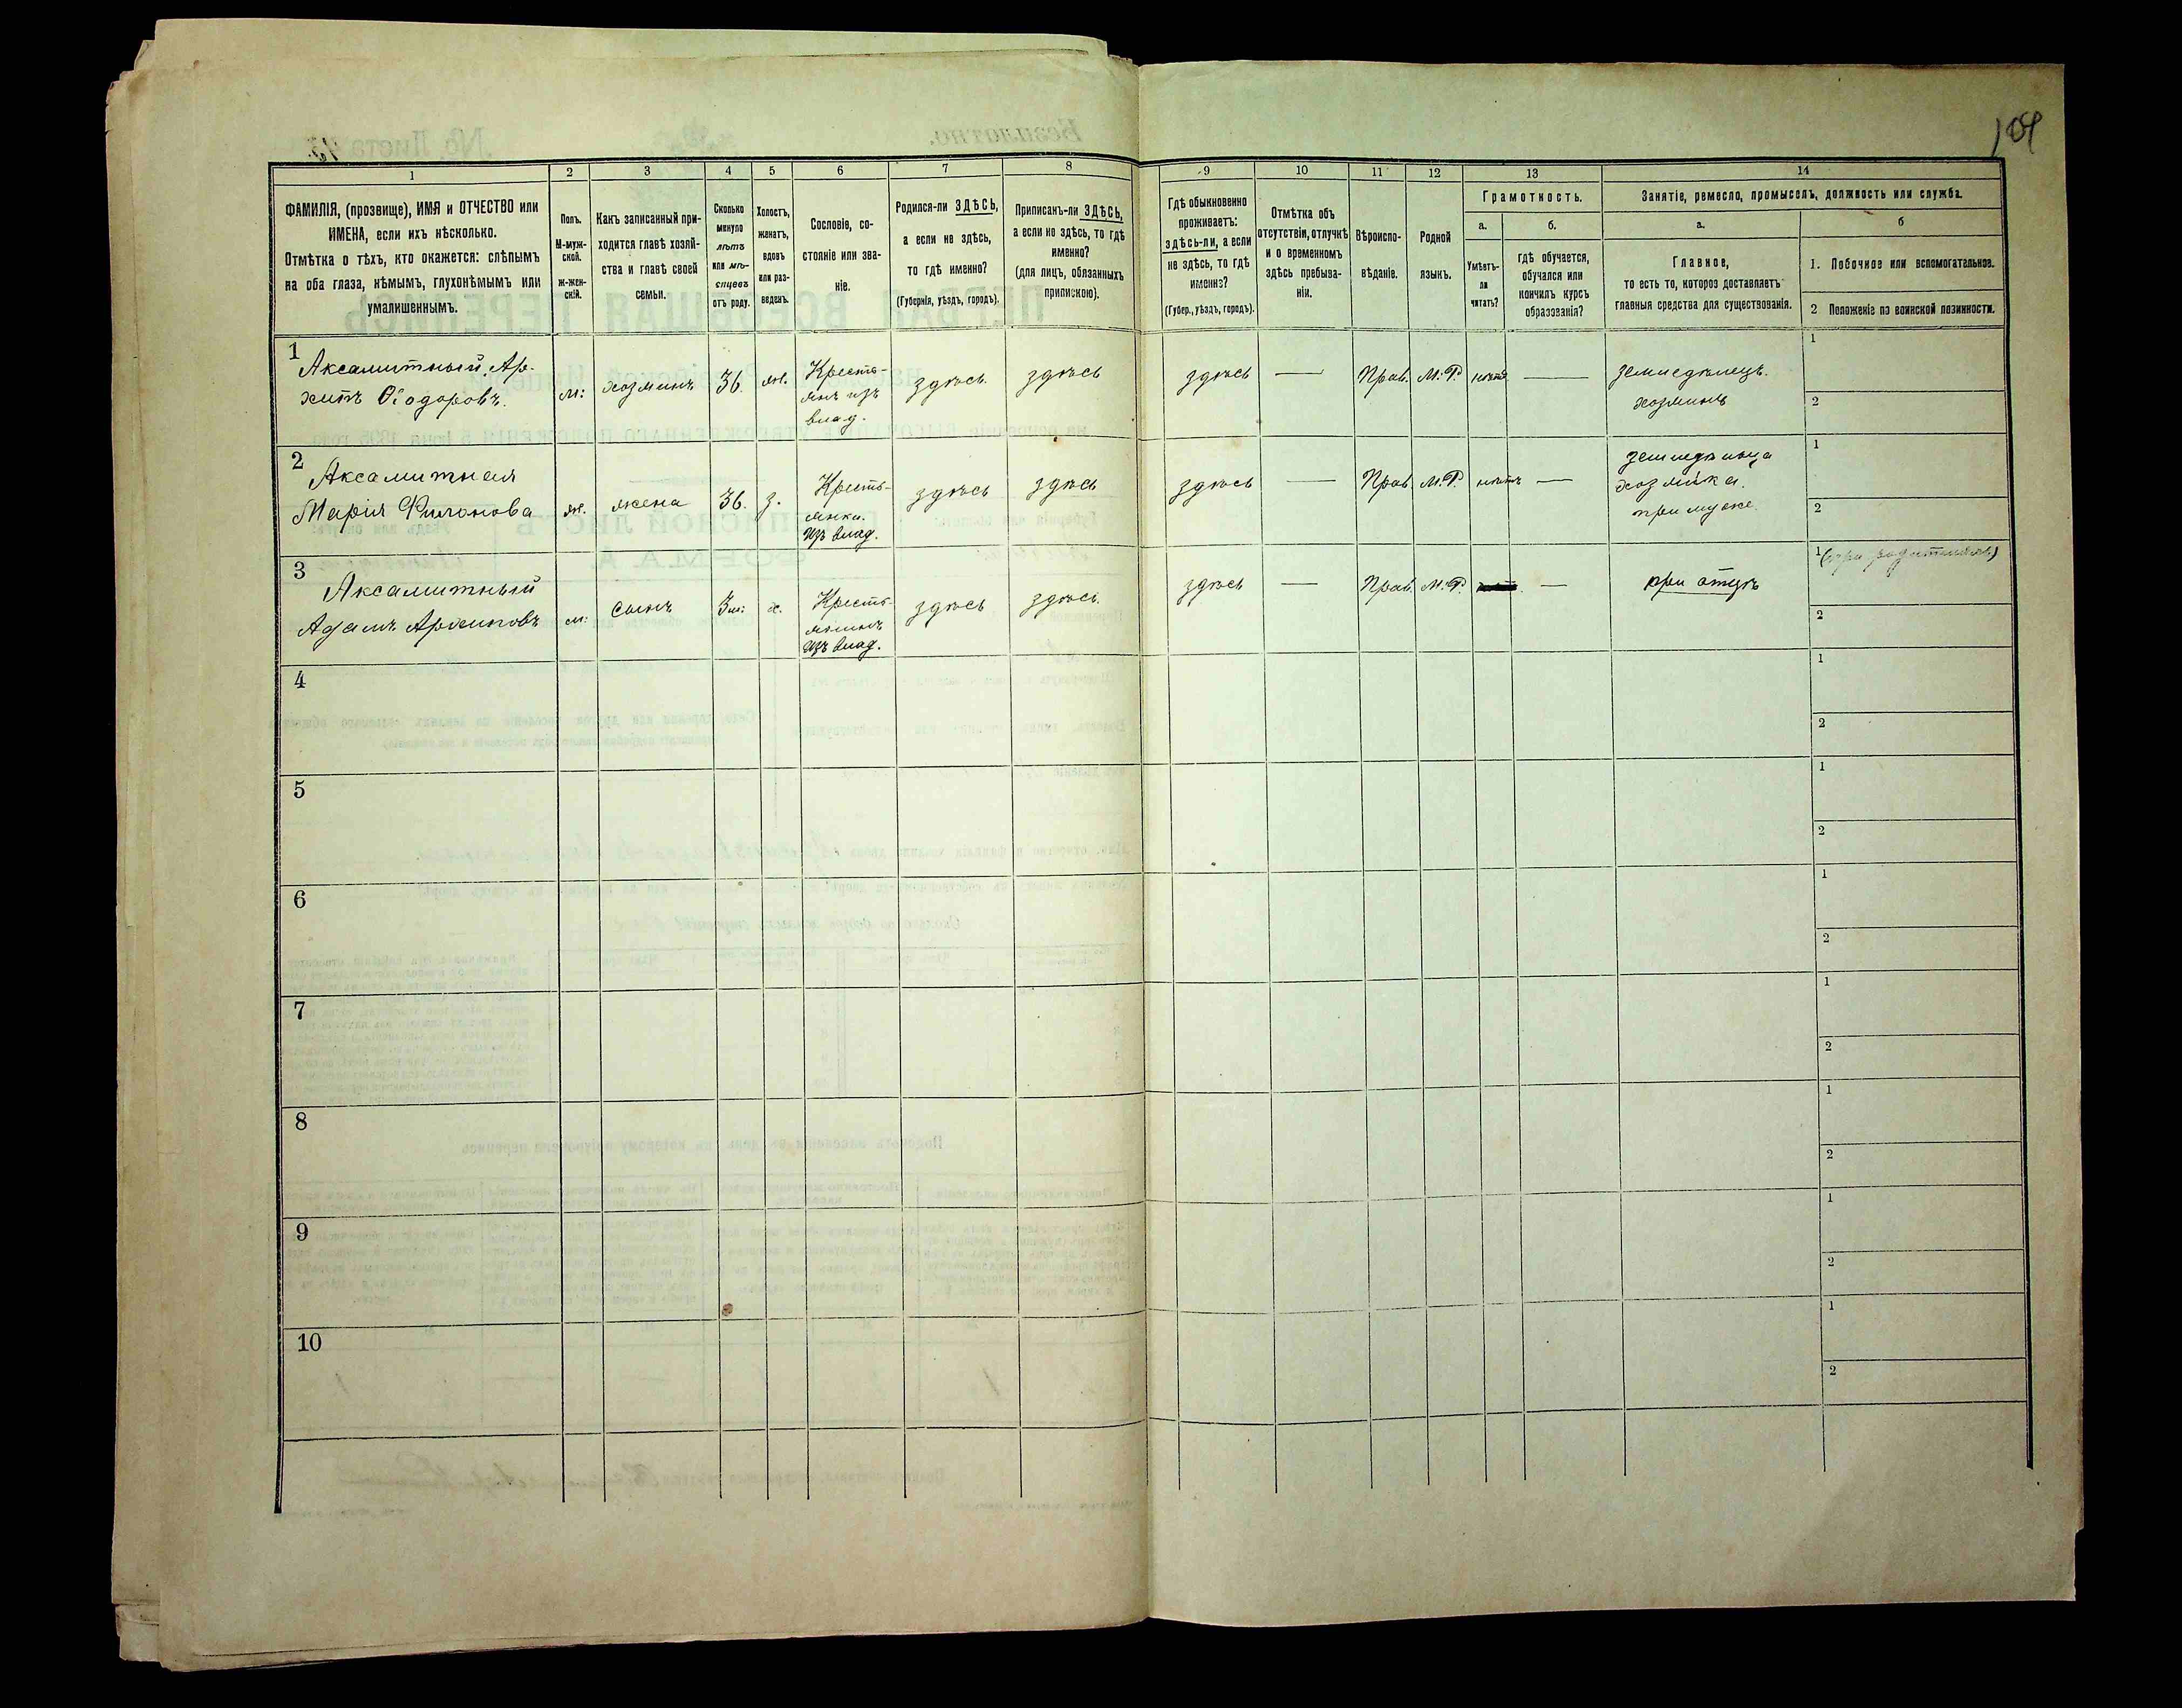 109
1
2
3
4
5
6
7
8
9
10
11
12
13
14
ФАМИЛІЯ, (прозвище), ИМЯ и ОТЧЕСТВО или
ИМЕНА, если ихъ нѣсколько.
Отмѣтка о тѣхъ, кто окажется: слѣпымъ
на оба глаза, нѣмымъ, глухонѣмымъ или
умалишеннымъ.
Полъ.
М-муж-
ской.
ж-жен-
скій.
Какъ записанный при-
ходится главѣ хозяй-
ства и главѣ своей
семьи.
Сколько
минуло
лѣтъ
или мѣ-
сяцевъ
отъ роду.
Холостъ,
женатъ,
вдовъ
или раз-
веденъ.
Сословіе, со-
стояніе или зва-
ніе.
Родился-ли ЗДѢСЬ,
а если не здѣсь,
то гдѣ именно?
(Губернія, уѣздъ, городъ).
Приписанъ-ли ЗДѢСЬ,
а если не здѣсь, то гдѣ
именно?
(для лицъ, обязанныхъ
припискою).
Гдѣ обыкновенно
проживаетъ:
здѣсь-ли, а если
не здѣсь, то гдѣ
именно?
(Губер., уѣздъ, городъ).
Отмѣтка объ
отсутствіи, отлучкѣ
и о временномъ
здѣсь пребыва-
ніи.
Вѣроиспо-
вѣданіе.
Родной
языкъ.
Грамотность.
а.
Умѣетъ-
ли
читать?
б.
гдѣ обучается,
обучался или
кончилъ курсъ
образованія?
Занятіе, ремесло, промыселъ, должность или служба.
а.
Главное,
то есть то, которое доставляетъ
главныя средства для существованія.
б
1. Побочное или вспомогательное.
2 Положеніе по воинской повинности.
1
Аксамитный Ар-
хипъ Ѳёодоровъ.
м:
хозяинъ
36.
жн.
Кресть-
янъ изъ
влад.
здѣсь.
здѣсь
здѣсь
—
Прав.
М.Р.
нѣтъ
—
земледѣлецъ.
хозяинъ
1
2
2
Аксамитная
Марія Филонова
жн.
жена
36.
з.
Кресть-
янка.
изъ влад.
здѣсь
здѣсь
здѣсь
—
Прав.
М.Р.
нѣтъ
—
земледѣлица
хозяйка.
при мужѣ.
1
2
3
Аксамитный
Адамъ Архиповъ
м:
сынъ
3м:
х.
Кресть-
янинъ
изъ влад.
здѣсь
здѣсь.
здѣсь
—
Прав.
М.Р.
—
при отцѣ
1
2
4
1
2
5
1
2
6
1
2
7
1
2
8
1
2
9
1
2
10
1
2